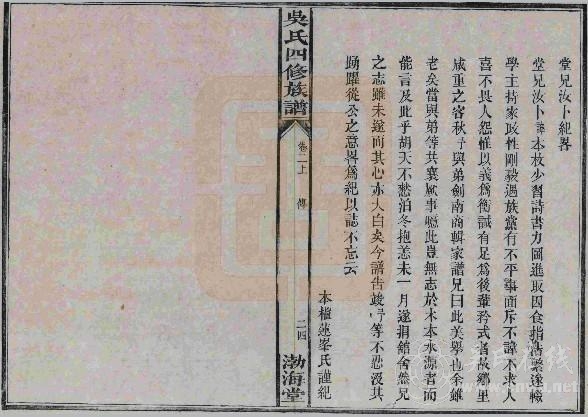 堂兄汝卜紀畧
堂兄汝卜譁本枚少習詩書力圖進取因食指浩繁遂輟
學主持家政性剛毅遇族黨有不平事面斥不諱不求人
喜不畏人怨惟以義爲衡誠有足爲後輩矜式者故鄉里
咸重之客秋與弟劍南商輯家譜兄曰此美擧也余雖
老矣當與弟等共襄厥事噫此豈無志於木本水源者而
能言及此乎胡天不憖泊冬抱恙未一月遂捐館舍然兄
之志雖未遂而其心亦大白矣今譜告竣等不忍沒其
踴躍從公之意畧爲紀以誌不忘云
本植蓮峯氏謹紀
吳氏四修族譜
卷二上
傳
二四
渤海堂
吳氏在线